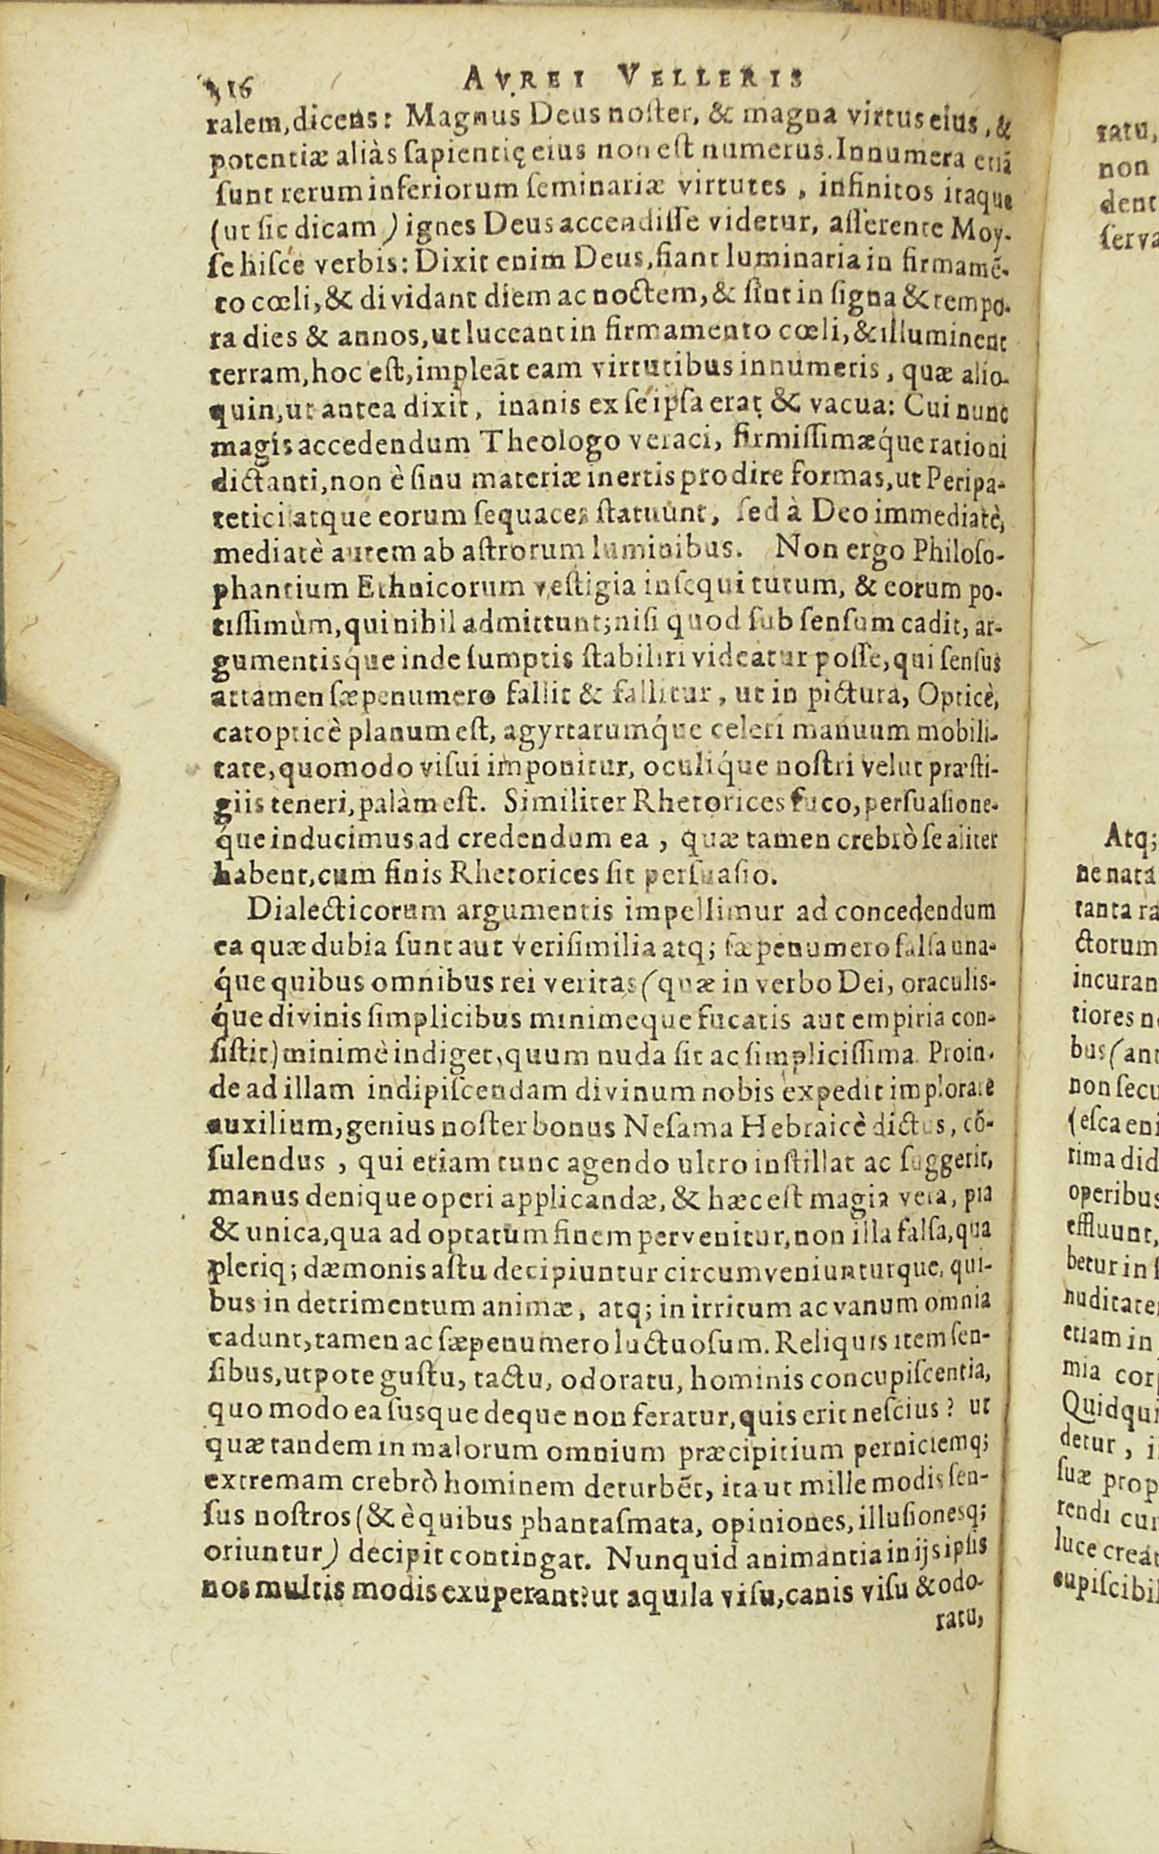 316 AVREI VELLERIS
ralem, dicens: Magnus Deus noſter, & magna virtus eius, &
potentiæ aliàs ſapientię eius non eſt numerus. Innumera etiã
ſunt rerum inferiorum ſeminariæ virtutes, infinitos itaque
(ut ſic dicam) ignes Deus accendiſſe videtur, aſſerente Moy-
ſe hiſce verbis: Dixit enim Deus, fiant luminaria in firmamẽ-
to cœli, & dividant diem ac noctem, & ſint in ſigna & tempo-
ra dies & annos, ut luceant in firmamento cœli, & illuminent
terram, hoc eſt, impleãt eam virtutibus innumeris, quæ alio-
quin, ut antea dixit, inanis ex ſe ipſa erat & vacua: Cui nunc
magis accedendum Theologo veraci, firmiſſimæq́ue rationi
dictanti, non è ſinu materiæ inertis prodire formas, ut Peripa-
tetici atque eorum ſequaces ſtatuunt, ſed à Deo immediatè,
mediatè autem ab aſtrorum luminibus. Non ergo Philoſo-
phantium Ethnicorum veſtigia inſequi tutum, & eorum po-
tiſſimùm, qui nihil admittunt; niſi quod ſub ſenſum cadit, ar-
gumentisq́ue inde ſumptis ſtabiliri videatur poſſe, qui ſenſus
attamen ſæpenumero fallit & fallitur, ut in pictura, Opticè,
catopticè planum eſt, agyrtarumq́ue celeri manuum mobili-
tate, quomodo viſui imponitur, oculiq́ue noſtri velut præſti-
giis teneri, palàm eſt. Similiter Rhetorices fuco, perſuaſione-
q́ue inducimus ad credendum ea, quæ tamen crebrò ſe aliter
habent, cum finis Rhetorices ſit perſuaſio.
Dialecticorum argumentis impellimur ad concedendum
ea quæ dubia ſunt aut veriſimilia atq; ſæpenumero falſa una-
q́ue quibus omnibus rei veritas (quæ in verbo Dei, oraculis-
q́ue divinis ſimplicibus minimeque fucatis aut empiria con-
ſiſtit) minimè indiget, quum nuda ſit ac ſimpliciſſima. Proin-
de ad illam indipiſcendam divinum nobis expedit implorare
auxilium, genius noſter bonus Neſama Hebraicè dictus, cõ-
ſulendus, qui etiam tunc agendo ultro inſtillat ac ſuggerit,
manus denique operi applicandæ, & hæc eſt magia vera, pia
& unica, qua ad optatum finem pervenitur, non illa falſa, qua
pleriq; dæmonis aſtu decipiuntur circumveniunturque, qui-
bus in detrimentum animæ, atq; in irritum ac vanum omnia
cadunt, tamen ac ſæpenumero luctuoſum. Reliquis item ſen-
ſibus, utpote guſtu, tactu, odoratu, hominis concupiſcentia,
quomodo ea ſusque deque non feratur, quis erit neſcius? ut
quæ tandem in malorum omnium præcipitium perniciemq;
extremam crebrò hominem deturbẽt, ita ut mille modis ſen-
ſus noſtros (& è quibus phantaſmata, opiniones, illuſionesq;
oriuntur) decipi contingat. Nunquid animantia in ijs ipſis
nos multis modis exuperant? ut aquila viſu, canis viſu & odo-
ratu,
ratu,
non
dent
ſerva
Atq;
ne nata
tanta ra
ctorum
incuran
tiores n
bus (ant
non ſecu
(eſca eni
rima did
operibus
effluunt,
betur in ſ
nuditate
etiam in
mia cor
Quidqui
detur, i
ſuæ prop
rendi cur
luce creat
cupiſcibil